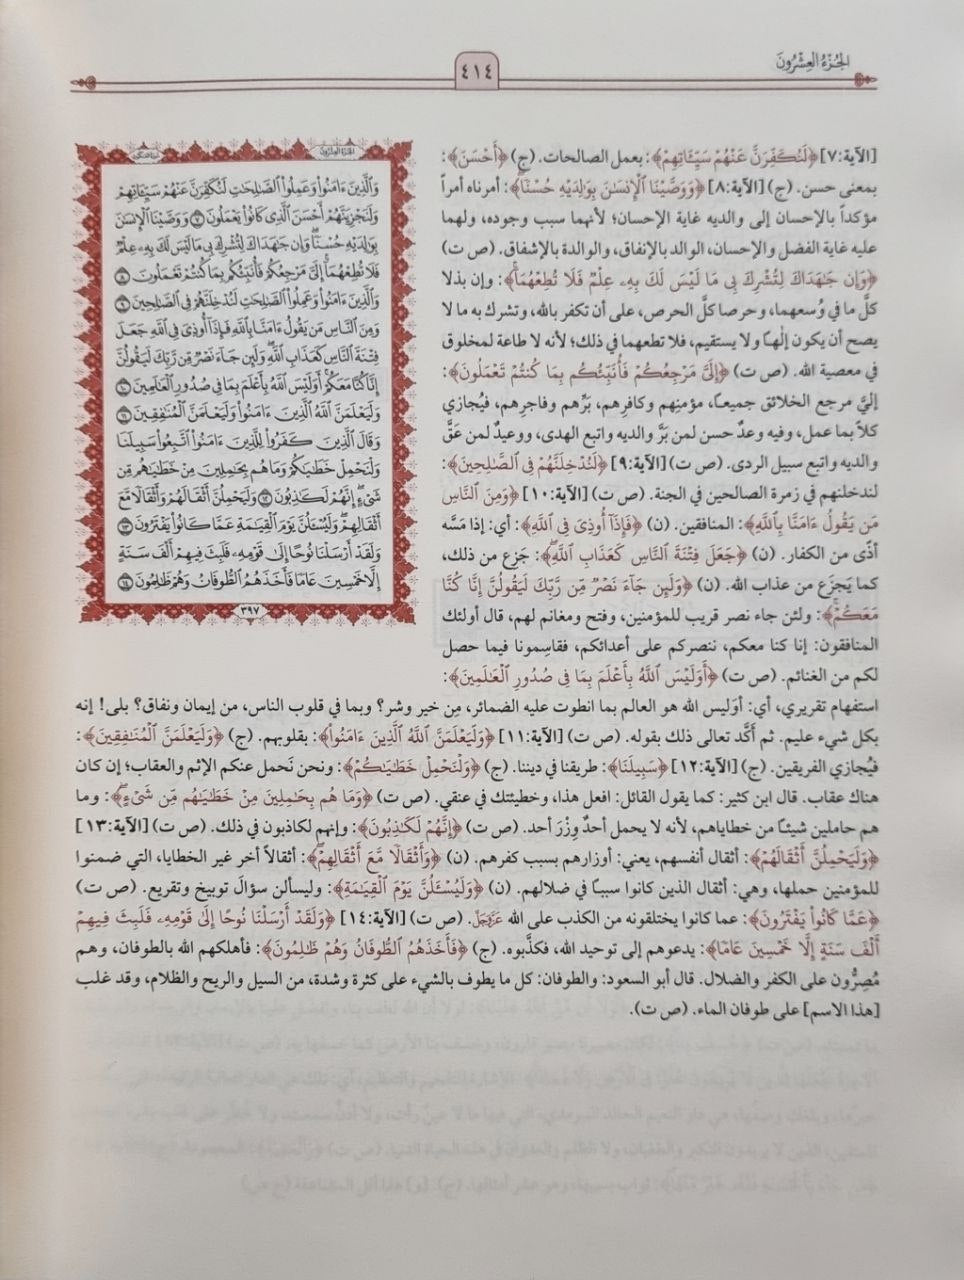 الجُزْءُ العِشْرُونَ
٤١٤
[الآية:٧] ﴿لَنُكَفِّرَنَّ عَنْهُمْ سَيِّـَٔاتِهِمْ﴾: بعمل الصالحات. (ج) ﴿أَحْسَنَ﴾:
بمعنى حسن. (ج) [الآية:٨] ﴿وَوَصَّيْنَا ٱلْإِنسَـٰنَ بِوَٰلِدَيْهِ حُسْنًا﴾: أمرناه أمراً
مؤكداً بالإحسان إلى والديه غاية الإحسان؛ لأنهما سبب وجوده، ولهما
عليه غاية الفضل والإحسان، الوالد بالإنفاق، والوالدة بالإشفاق. (ص ت)
﴿وَإِن جَـٰهَدَاكَ لِتُشْرِكَ بِى مَا لَيْسَ لَكَ بِهِۦ عِلْمٌ فَلَا تُطِعْهُمَا﴾: وإن بذلا
كلَّ ما في وُسعهما، وحرصا كلَّ الحرص، على أن تكفر بالله، وتشرك به ما لا
يصح أن يكون إلٰهاً ولا يستقيم، فلا تطعهما في ذلك؛ لأنه لا طاعة لمخلوق
في معصية الله. (ص ت) ﴿إِلَىَّ مَرْجِعُكُمْ فَأُنَبِّئُكُم بِمَا كُنتُمْ تَعْمَلُونَ﴾:
إليَّ مرجع الخلائق جميعاً، مؤمنِهم وكافرِهم، بَرِّهم وفاجرِهم، فيُجازي
كلاً بما عمل، وفيه وعدٌ حسن لمن بَرَّ والديه واتبع الهدى، ووعيدٌ لمن عَقَّ
والديه واتبع سبيل الردى. (ص ت) [الآية:٩] ﴿لَنُدْخِلَنَّهُمْ فِى ٱلصَّـٰلِحِينَ﴾:
لندخلنهم في زمرة الصالحين في الجنة. (ص ت) [الآية:١٠] ﴿وَمِنَ ٱلنَّاسِ
مَن يَقُولُ ءَامَنَّا بِٱللَّهِ﴾: المنافقين. (ن) ﴿فَإِذَآ أُوذِىَ فِى ٱللَّهِ﴾: أي: إذا مَسَّه
أذًى من الكفار. (ن) ﴿جَعَلَ فِتْنَةَ ٱلنَّاسِ كَعَذَابِ ٱللَّهِ﴾: جَزِع من ذلك،
كما يَجزَع من عذاب الله. (ن) ﴿وَلَئِن جَآءَ نَصْرٌ مِّن رَّبِّكَ لَيَقُولُنَّ إِنَّا كُنَّا
مَعَكُمْ﴾: ولئن جاء نصر قريب للمؤمنين، وفتح ومغانم لهم، قال أولئك
المنافقون: إنا كنا معكم، ننصركم على أعدائكم، فقاسِمونا فيما حصل
لكم من الغنائم. (ص ت) ﴿أَوَلَيْسَ ٱللَّهُ بِأَعْلَمَ بِمَا فِى صُدُورِ ٱلْعَـٰلَمِينَ﴾:
استفهام تقريري، أي: أوَليس الله هو العالم بما انطوت عليه الضمائر، مِن خير وشر؟ وبما في قلوب الناس، من إيمان ونفاق؟ بلى! إنه
بكل شيء عليم. ثم أكَّد تعالى ذلك بقوله. (ص ت) [الآية:١١] ﴿وَلَيَعْلَمَنَّ ٱللَّهُ ٱلَّذِينَ ءَامَنُوا۟﴾: بقلوبهم. (ج) ﴿وَلَيَعْلَمَنَّ ٱلْمُنَـٰفِقِينَ﴾:
فيُجازي الفريقين. (ج) [الآية:١٢] ﴿سَبِيلَنَا﴾: طريقنا في ديننا. (ج) ﴿وَلْنَحْمِلْ خَطَـٰيَـٰكُمْ﴾: ونحن نَحمل عنكم الإثم والعقاب؛ إن كان
هناك عقاب. قال ابن كثير: كما يقول القائل: افعل هذا، وخطيئتك في عنقي. (ص ت) ﴿وَمَا هُم بِحَـٰمِلِينَ مِنْ خَطَـٰيَـٰهُم مِّن شَىْءٍ﴾: وما
هم حاملين شيئاً من خطاياهم، لأنه لا يحمل أحدٌ وِزْرَ أحد. (ص ت) ﴿إِنَّهُمْ لَكَـٰذِبُونَ﴾: وإنهم لكاذبون في ذلك. (ص ت) [الآية:١٣]
﴿وَلَيَحْمِلُنَّ أَثْقَالَهُمْ﴾: أثقال أنفسهم، يعني: أوزارهم بسبب كفرهم. (ن) ﴿وَأَثْقَالًا مَّعَ أَثْقَالِهِمْ﴾: أثقالاً أخر غير الخطايا، التي ضمنوا
للمؤمنين حملها، وهي: أثقال الذين كانوا سبباً في ضلالهم. (ن) ﴿وَلَيُسْـَٔلُنَّ يَوْمَ ٱلْقِيَـٰمَةِ﴾: وليسألن سؤالَ توبيخ وتقريع. (ص ت)
﴿عَمَّا كَانُوا۟ يَفْتَرُونَ﴾: عما كانوا يختلقونه من الكذب على الله عَزَّوَجَلَّ. (ص ت) [الآية:١٤] ﴿وَلَقَدْ أَرْسَلْنَا نُوحًا إِلَىٰ قَوْمِهِۦ فَلَبِثَ فِيهِمْ
أَلْفَ سَنَةٍ إِلَّا خَمْسِينَ عَامًا﴾: يدعوهم إلى توحيد الله، فكذَّبوه. (ج) ﴿فَأَخَذَهُمُ ٱلطُّوفَانُ وَهُمْ ظَـٰلِمُونَ﴾: فأهلكهم الله بالطوفان، وهم
مُصِرُّون على الكفر والضلال. قال أبو السعود: والطوفان: كل ما يطوف بالشيء على كثرة وشدة، من السيل والريح والظلام، وقد غلب
[هذا الاسم] على طوفان الماء. (ص ت).
الجزء العشرون
سورة العنكبوت
وَٱلَّذِينَ ءَامَنُوا۟ وَعَمِلُوا۟ ٱلصَّـٰلِحَـٰتِ لَنُكَفِّرَنَّ عَنْهُمْ سَيِّـَٔاتِهِمْ
وَلَنَجْزِيَنَّهُمْ أَحْسَنَ ٱلَّذِى كَانُوا۟ يَعْمَلُونَ ٧ وَوَصَّيْنَا ٱلْإِنسَـٰنَ
بِوَٰلِدَيْهِ حُسْنًا وَإِن جَـٰهَدَاكَ لِتُشْرِكَ بِى مَا لَيْسَ لَكَ بِهِۦ عِلْمٌ
فَلَا تُطِعْهُمَآ إِلَىَّ مَرْجِعُكُمْ فَأُنَبِّئُكُم بِمَا كُنتُمْ تَعْمَلُونَ ٨
وَٱلَّذِينَ ءَامَنُوا۟ وَعَمِلُوا۟ ٱلصَّـٰلِحَـٰتِ لَنُدْخِلَنَّهُمْ فِى ٱلصَّـٰلِحِينَ ٩
وَمِنَ ٱلنَّاسِ مَن يَقُولُ ءَامَنَّا بِٱللَّهِ فَإِذَآ أُوذِىَ فِى ٱللَّهِ جَعَلَ
فِتْنَةَ ٱلنَّاسِ كَعَذَابِ ٱللَّهِ وَلَئِن جَآءَ نَصْرٌ مِّن رَّبِّكَ لَيَقُولُنَّ
إِنَّا كُنَّا مَعَكُمْ أَوَلَيْسَ ٱللَّهُ بِأَعْلَمَ بِمَا فِى صُدُورِ ٱلْعَـٰلَمِينَ ١٠
وَلَيَعْلَمَنَّ ٱللَّهُ ٱلَّذِينَ ءَامَنُوا۟ وَلَيَعْلَمَنَّ ٱلْمُنَـٰفِقِينَ ١١
وَقَالَ ٱلَّذِينَ كَفَرُوا۟ لِلَّذِينَ ءَامَنُوا۟ ٱتَّبِعُوا۟ سَبِيلَنَا
وَلْنَحْمِلْ خَطَـٰيَـٰكُمْ وَمَا هُم بِحَـٰمِلِينَ مِنْ خَطَـٰيَـٰهُم مِّن
شَىْءٍ إِنَّهُمْ لَكَـٰذِبُونَ ١٢ وَلَيَحْمِلُنَّ أَثْقَالَهُمْ وَأَثْقَالًا مَّعَ
أَثْقَالِهِمْ وَلَيُسْـَٔلُنَّ يَوْمَ ٱلْقِيَـٰمَةِ عَمَّا كَانُوا۟ يَفْتَرُونَ ١٣
وَلَقَدْ أَرْسَلْنَا نُوحًا إِلَىٰ قَوْمِهِۦ فَلَبِثَ فِيهِمْ أَلْفَ سَنَةٍ
إِلَّا خَمْسِينَ عَامًا فَأَخَذَهُمُ ٱلطُّوفَانُ وَهُمْ ظَـٰلِمُونَ ١٤
٣٩٧